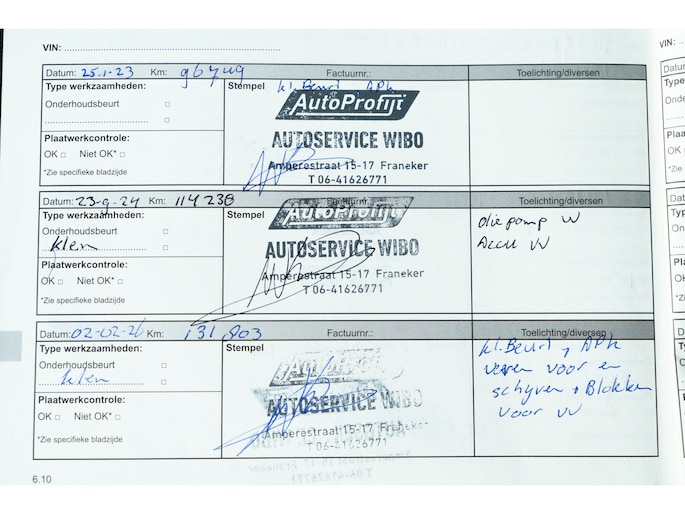 VIN:
VIN:
Datum: 25-1-23 Km: 96749 Factuurnr.: Toelichting/diversen
Type werkzaamheden: Stempel kl. Beurt, APK
Onderhoudsbeurt □
AutoProfijt
AUTOSERVICE WIBO
Plaatwerkcontrole:
OK □ Niet OK* □
Amperestraat 15-17 Franeker
*Zie specifieke bladzijde
T 06-41626771
Datum: 23-9-24 Km: 114238 Factuurnr.: Toelichting/diversen
Type werkzaamheden: Stempel
AutoProfijt
oliepomp VV
Onderhoudsbeurt □
klein □
AUTOSERVICE WIBO
Accu VV
Plaatwerkcontrole:
Amperestraat 15-17 Franeker
OK □ Niet OK* □
T 06-41626771
*Zie specifieke bladzijde
Datum: 02-02-26 Km: 131.803 Factuurnr.: Toelichting/diversen
Type werkzaamheden: Stempel
kl. Beurt, APK
Onderhoudsbeurt □
AutoProfijt
veren voor en
klein □
AUTOSERVICE WIBO
schijven + Blokken
Plaatwerkcontrole:
voor VV
OK □ Niet OK* □
Amperestraat 15-17 Franeker
*Zie specifieke bladzijde
T 06-41626771
6.10